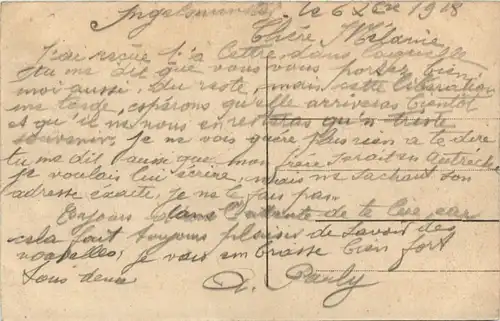 Ingelmunster le 6 Xbre 1918
Chère Mélanie
J'ai reçue ta lettre, dans laquelle
tu me dit que vous vous portez bien
moi aussi du reste, mais cette libération
me tarde, espérons qu'elle arriveras bientot
et qu'il ne nous en resteras qu'n triste
souvenir. Je ne vois guère plus rien a te dire
tu me dit aussi que mon frère serait en Autriche
je voulais lui écrire, mais ne sachant son
adresse éxacte, je ne le fais pas.
Toujours dans l'attente de te lire, car
cela fait toujours plaisir de savoir des
nouvelles, je vous embrasse bien fort
tous deux
A. Pauly